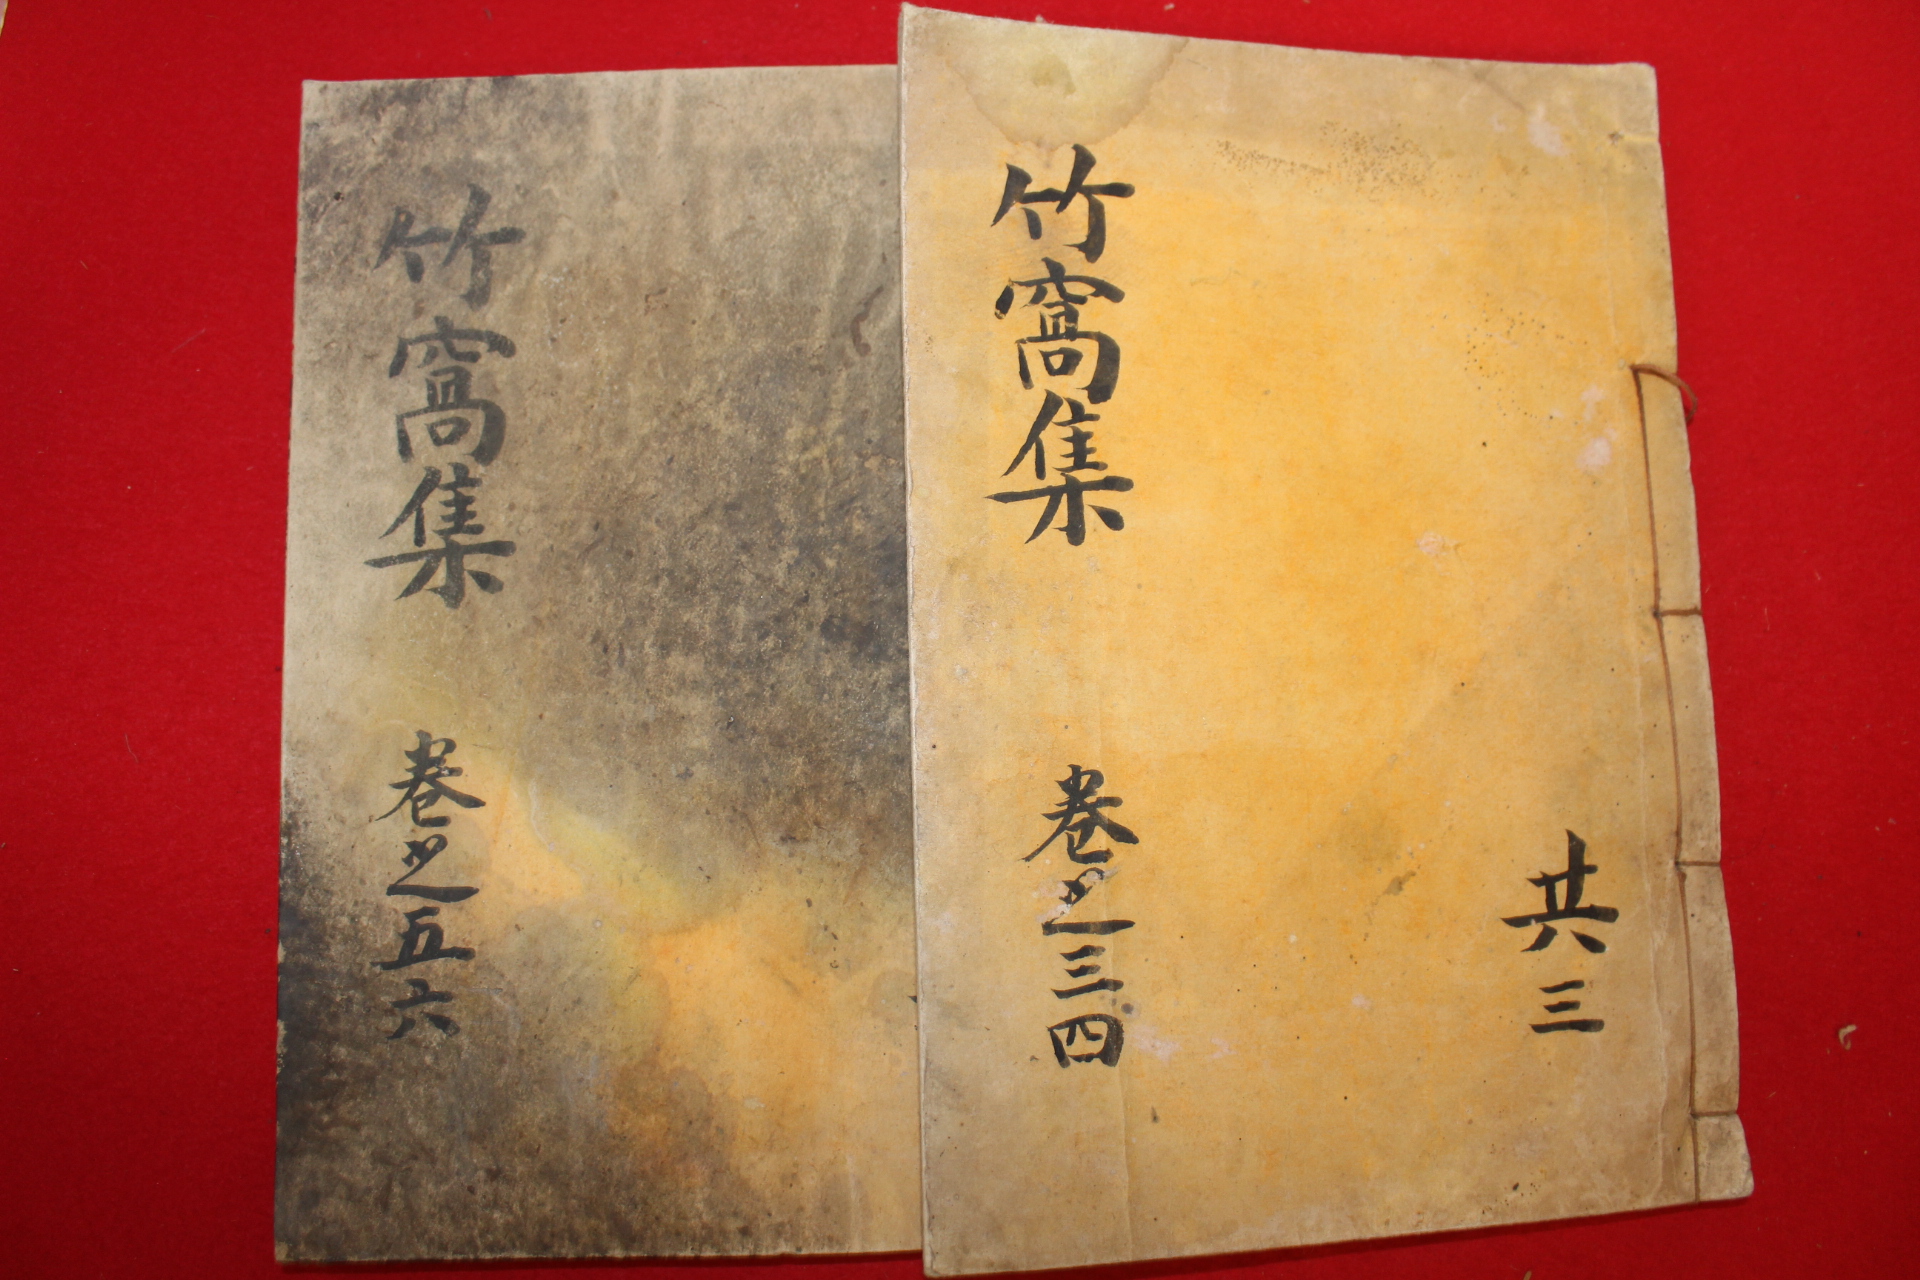 共三
竹窩集
卷之三四
竹窩集
卷之五六